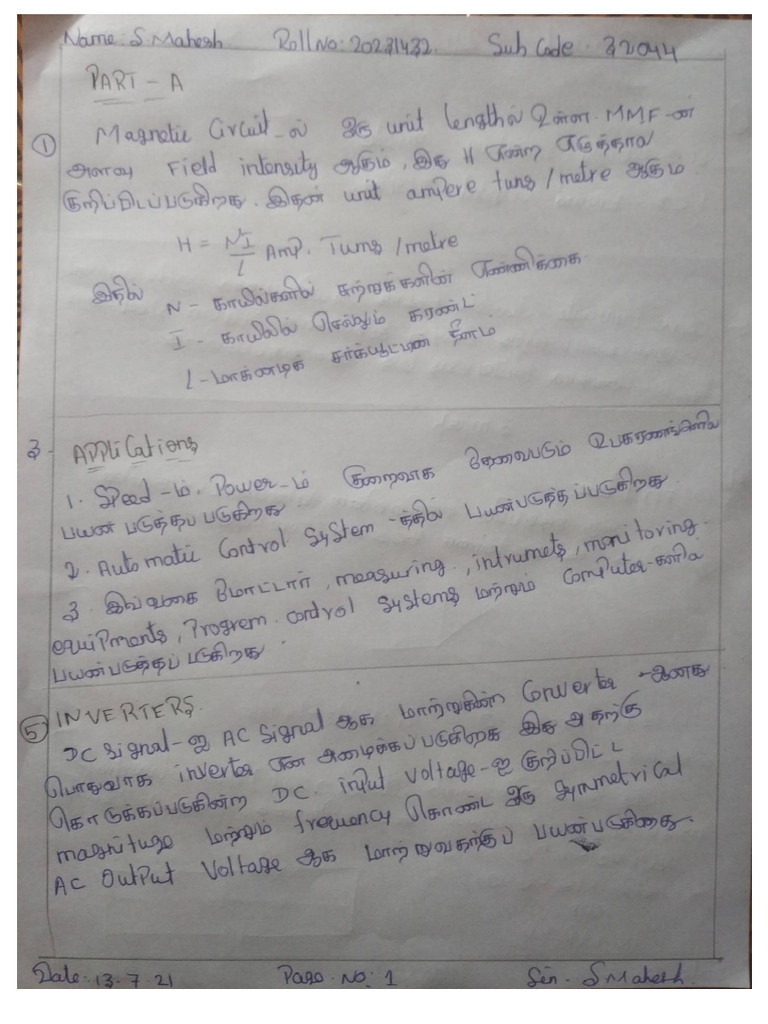 Name: S. Mahesh Roll No: 20231432. Sub Code: 32044
PART - A
① Magnetic Circuit-ல் ஒரு unit lengthல் உள்ள MMF-ன்
அளவு Field intensity ஆகும். இது H என்ற எழுத்தால்
குறிப்பிடப்படுகிறது. இதன் unit ampere tuns/metre ஆகும்
H = NI/l Amp. Turns/metre
இதில் N - காயில்களில் சுற்றுக்களின் எண்ணிக்கை.
I - காயிலில் செல்லும் கரண்ட்
l - மாக்னடிக் சர்க்யூட்டின் நீளம்
3. Applications
1. Speed-ம். Power-ம் குறைவாக தேவைபடும் உபகரணங்களில்
பயன் படுத்தப் படுகிறது
2. Automatic Control System-த்தில் பயன்படுத்தப்படுகிறது.
3. இவ்வகை மோட்டார், measuring, intrumets, monitoring.
equipments, Progrem. control systems மற்றும் Computer-களில்
பயன்படுத்தப் படுகிறது.
⑤ INVERTERS.
DC signal-ஐ AC signal ஆக மாற்றுகின்ற Converter -ஆனது
பொதுவாக inverter என அழைக்கப்படுகிறது இது அதற்கு
கொடுக்கப்படுகின்ற DC. input voltage-ஐ குறிப்பிட்ட
magnitude மற்றும் frequency கொண்ட ஒரு symmetrical
AC Output Voltage ஆக மாற்றுவதற்குப் பயன்படுகிறது.
Date: 13.7.21 Page. No: 1 Sin. S Mahesh.